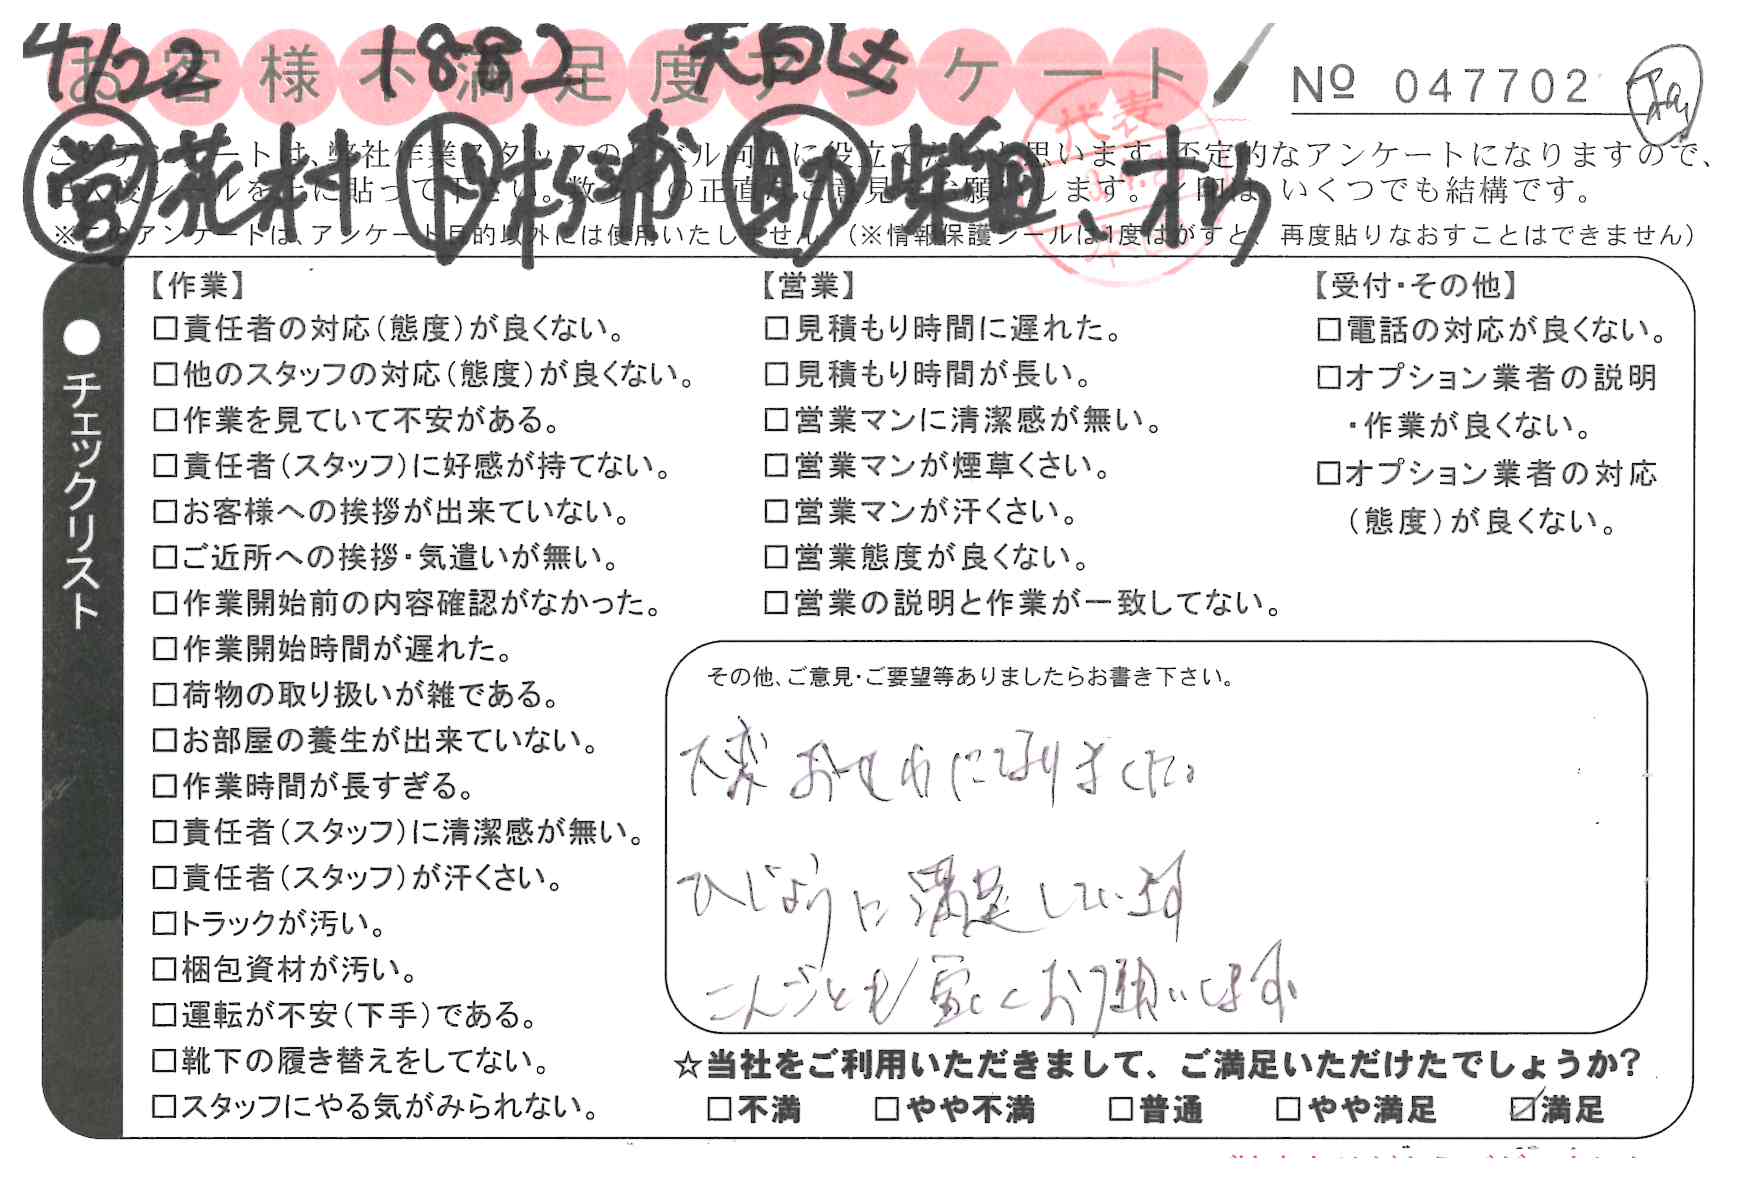 4/22 1882 天白区
お客様不満足度アンケート
Nº 047702
営 花村 ト 杉浦 助 柴田、杉
このアンケートは、弊社作業スタッフのレベル向上に役立てたいと思います。否定的なアンケートになりますので、
記入後シールを上に貼って下さい。数多くの正直なご意見をお願いします。レ印は、いくつでも結構です。
※このアンケートは、アンケート目的以外には使用いたしません。(※情報保護シールは1度はがすと、再度貼りなおすことはできません)
代表
●チェックリスト
【作業】
□責任者の対応(態度)が良くない。
□他のスタッフの対応(態度)が良くない。
□作業を見ていて不安がある。
□責任者(スタッフ)に好感が持てない。
□お客様への挨拶が出来ていない。
□ご近所への挨拶・気遣いが無い。
□作業開始前の内容確認がなかった。
□作業開始時間が遅れた。
□荷物の取り扱いが雑である。
□お部屋の養生が出来ていない。
□作業時間が長すぎる。
□責任者(スタッフ)に清潔感が無い。
□責任者(スタッフ)が汗くさい。
□トラックが汚い。
□梱包資材が汚い。
□運転が不安(下手)である。
□靴下の履き替えをしてない。
□スタッフにやる気がみられない。
【営業】
□見積もり時間に遅れた。
□見積もり時間が長い。
□営業マンに清潔感が無い。
□営業マンが煙草くさい。
□営業マンが汗くさい。
□営業態度が良くない。
□営業の説明と作業が一致してない。
【受付・その他】
□電話の対応が良くない。
□オプション業者の説明
・作業が良くない。
□オプション業者の対応
(態度)が良くない。
その他、ご意見・ご要望等ありましたらお書き下さい。
大変おせわになりました。
ひじょうに満足しています
こんごとも宜しくお願いします。
☆当社をご利用いただきまして、ご満足いただけたでしょうか?
□不満 □やや不満 □普通 □やや満足 ☑満足